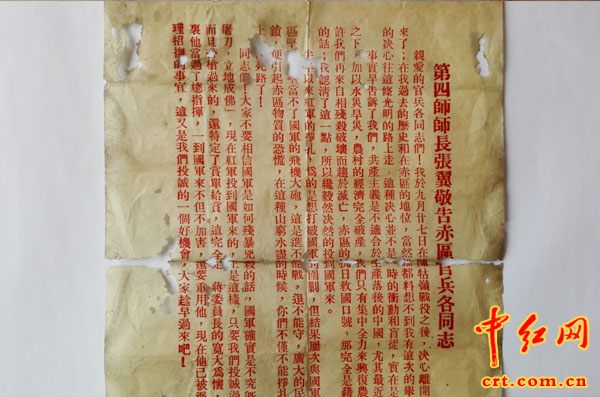 第四師師長張翼敬告赤區官兵各同志
親愛的官兵各同志們！我於九月廿七日在陳姑嶺戰役之後，決心離開
來了；在我過去的歷史和在赤區的地位，當然 都料想不到我有這次的舉
的决心往這條光明的路上走．這種决心並不是 時的衝動和盲從，實在是
事實早告訴了我們，共產主義是不適合於 產落後的中國，尤其最近
之下， 加以水災旱災，農村的經濟完全破產，我們只有集中全力來復興農
許我們再來自相殘殺破壞而趨於滅亡，赤區的 日救國口號，那完全是藉
的話；我認清了這一點，所以纔毅然决然的投到國軍來。
年以來紅軍的爭扎，爲的是想打破國軍的圍剿，但結果屢次與國軍
區 當不了國軍的飛機大砲，這是進不能戰，退不能守，廣大的民
鎖，便引起赤區物質的恐慌，在這種山窮水盡的時候，你們不僅不能掙扎
上 死路了！
同志 ！大家不要相信國軍是如何殘暴兇殺的話，國軍確實是不究既
屠刀，立地成佛」，現在紅軍投到國軍來的， 是這樣，只要我們投誠過
而且 槍過來的，還特定了賞單給賞，這完全 蔣委員長的寬大爲懷，
裏他當過了總指揮，一到國軍來不但不加害 還要重用他，現在他已被派
理招撫的事宜，這又是我們投誠的一個好機會，大家趁早過來吧！
中红网
crt.com.cn